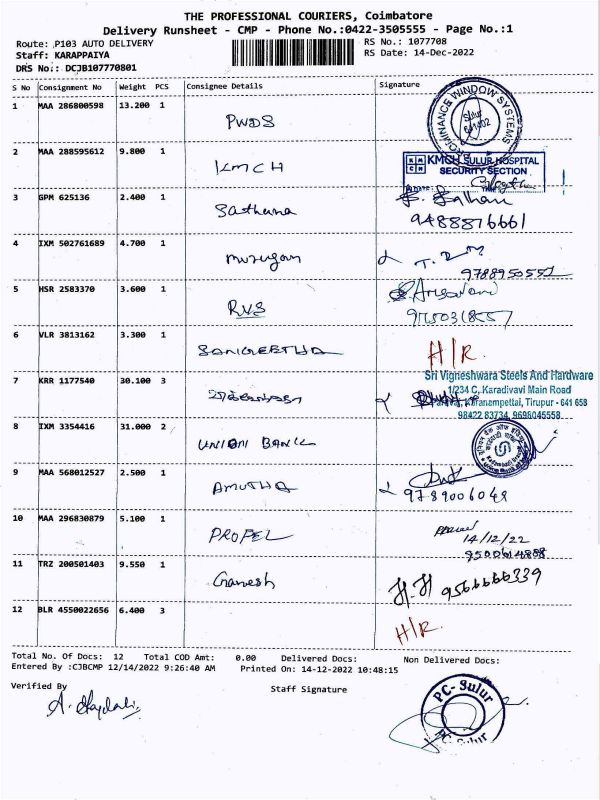 THE PROFESSIONAL COURIERS, Coimbatore
Delivery Runsheet - CMP - Phone No.:0422-3505555 - Page No.:1
Route: P103 AUTO DELIVERY
RS No.: 1077708
Staff: KARAPPAIYA
RS Date: 14-Dec-2022
DRS No.: DCJB107770801
S No Consignment No Weight PCS Consignee Details Signature
1 MAA 286800598 13.200 1 PWDS
PROMINANCE WINDOW SYSTEMS
Sulur
641402
2 MAA 288595612 9.800 1 KMCH
KMCH KMCH SULUR HOSPITAL
SECURITY SECTION
3 GPM 625136 2.400 1 Sathana
9488876661
4 IXM 502761689 4.700 1 murugan
9788950551
5 HSR 2583370 3.600 1 RVS
6 VLR 3813162 3.300 1 SANGEETHA H/R.
7 KRR 1177540 30.100 3
Sri Vigneshwara Steels And Hardware
1/234 C, Karadivavi Main Road
Karanampettai, Tirupur - 641 658
98422 83734, 9698045558
8 IXM 3354416 31.000 2 UNION BANK
9 MAA 568012527 2.500 1 AMUTHA
9789006048
10 MAA 296830879 5.100 1 PROPEL
14/12/22
9500614888
11 TRZ 200501403 9.550 1 Ganesh H.H 9566666339
12 BLR 4550022656 6.400 3 H/R.
Total No. Of Docs: 12 Total COD Amt: 0.00 Delivered Docs: Non Delivered Docs:
Entered By :CJBCMP 12/14/2022 9:26:40 AM Printed On: 14-12-2022 10:48:15
Verified By
Staff Signature
PC-Sulur
PC-Sulur